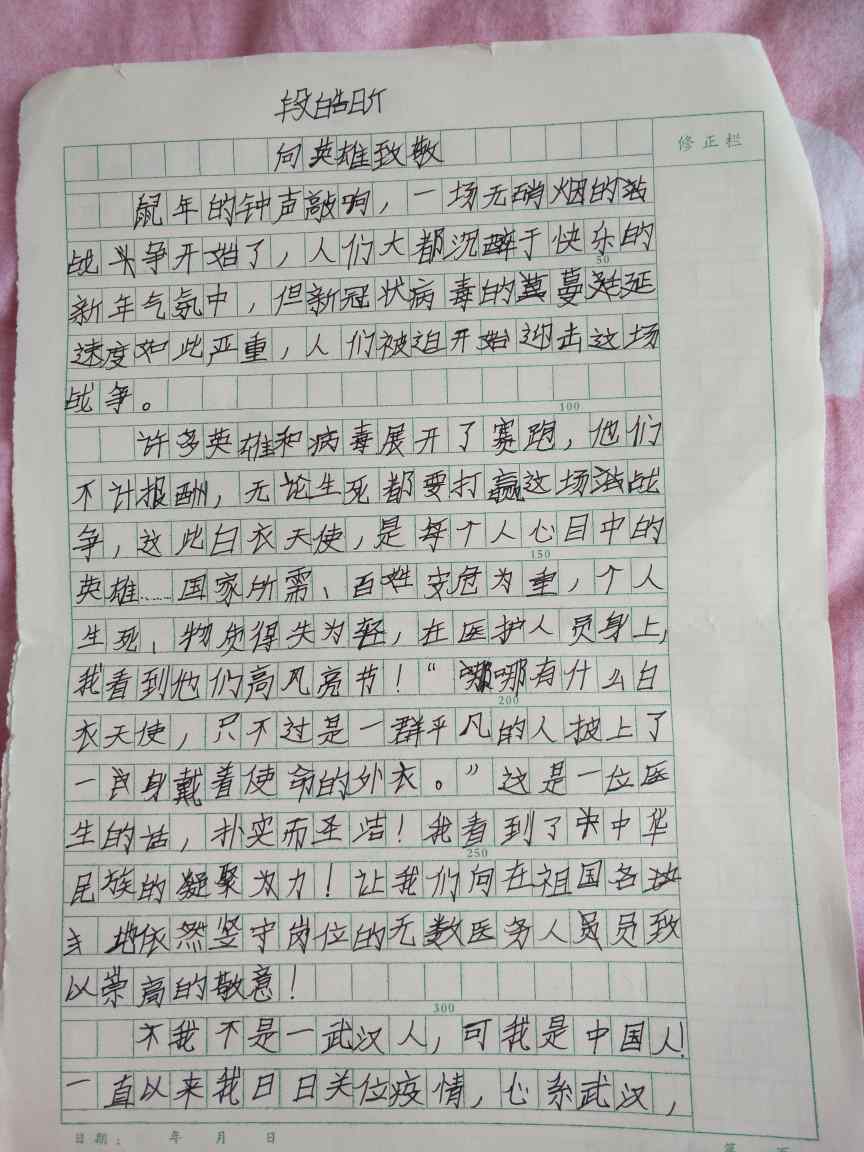 段皓昕
向英雄致敬
修正栏
鼠年的钟声敲响，一场无硝烟的
战争开始了，人们大都沉醉于快乐的
50
新年气氛中，但新冠状病毒的蔓延
速度如此严重，人们被迫开始迎击这场
战争。
100
许多英雄和病毒展开了赛跑，他们
不计报酬，无论生死都要打赢这场战
争，这此白衣天使，是每个人心目中的
150
英雄……国家所需、百姓安危为重，个人
生死、物质得失为轻，在医护人员身上，
我看到他们高风亮节！“哪有什么白
200
衣天使，只不过是一群平凡的人披上了
一身戴着使命的外衣。”这是一位医
生的话，扑实而圣洁！我看到了中华
250
民族的凝聚力！让我们向在祖国各
地依然坚守岗位的无数医务人员致
以崇高的敬意！
300
我不是一武汉人，可我是中国人！
一直以来我日日关位疫情，心系武汉，
日期： 年 月 日
第 页